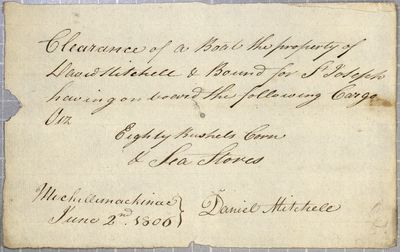 Clearance of a Boat the property of
David Mitchell & Bound for St Joseph
having on board the following Cargo
Viz
Eighty Bushels Corn
& Sea Stores
Michilimackinac
June 2nd. 1806
Daniel Mitchell